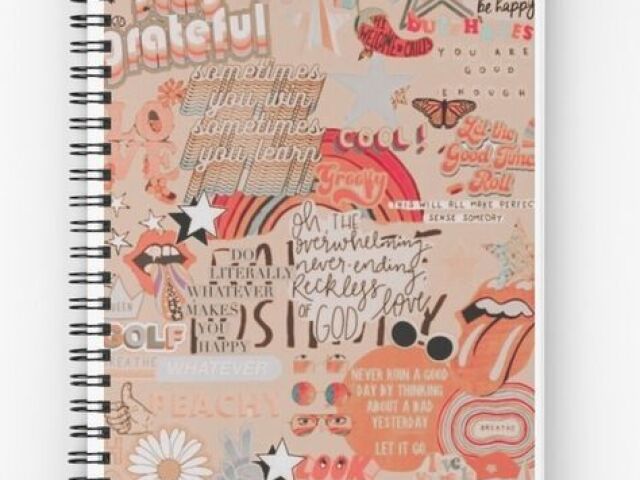 grateful
be happy
YOU ARE
GOOD
ENOUGH
LO
VE
sometimes
you win
sometimes
you learn
COOL!
Groovy
Let the
Good Times
Roll
THIS WILL ALL MAKE PERFECT
SENSE SOMEDAY
oh, THE
overwhelming
never-ending,
Reckless
love
OF GOD
DO
LITERALLY
WHATEVER
MAKES
YOU
HAPPY
QUEEN
GOLF
BREATHE
WHATEVER
PEACHY
NEVER RUIN A GOOD
DAY BY THINKING
ABOUT A BAD
YESTERDAY
LET IT GO
BREATHE
LOOK